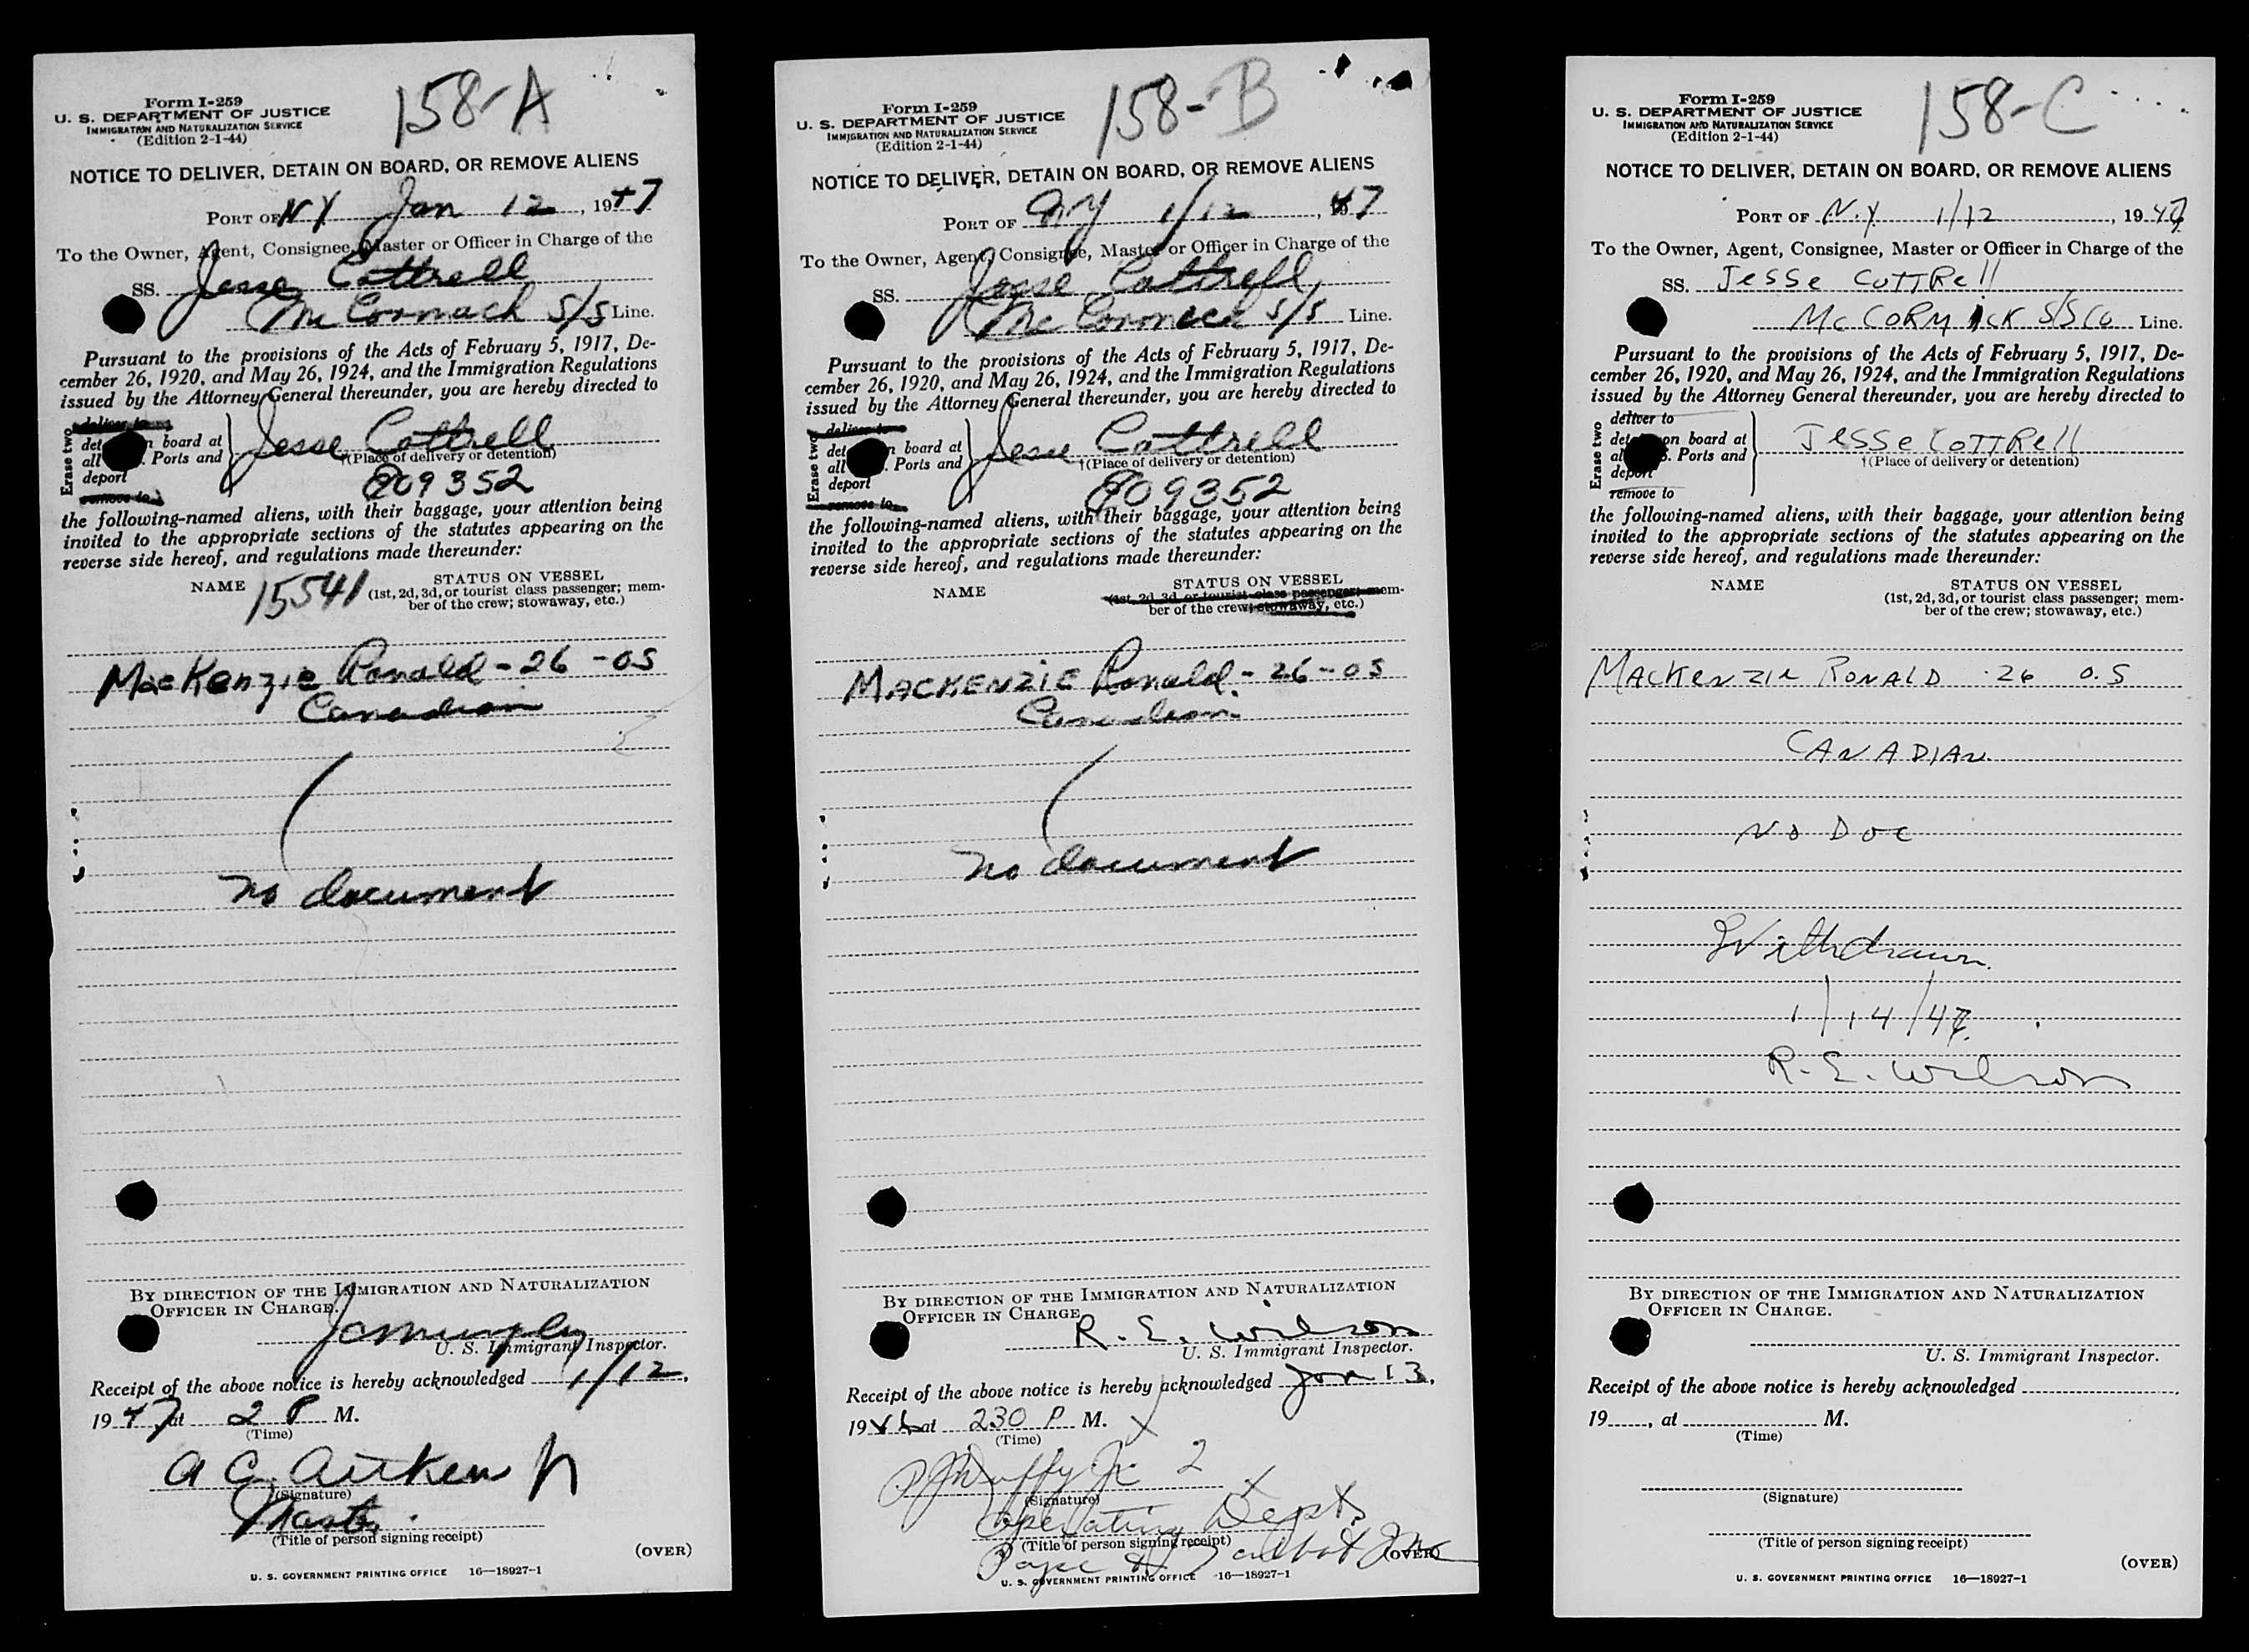 158-A
Form I-259
U. S. DEPARTMENT OF JUSTICE
IMMIGRATION AND NATURALIZATION SERVICE
(Edition 2-1-44)
NOTICE TO DELIVER, DETAIN ON BOARD, OR REMOVE ALIENS
PORT OF NY Jan 12, 1947
To the Owner, Agent, Consignee, Master or Officer in Charge of the
SS. Jesse Cottrell
McCormack S/S Line.
Pursuant to the provisions of the Acts of February 5, 1917, De-
cember 26, 1920, and May 26, 1924, and the Immigration Regulations
issued by the Attorney General thereunder, you are hereby directed to
Erase two
deliver to
det n board at
all . Ports and
deport
remove to
Jesse Cottrell
†(Place of delivery or detention)
809352
the following-named aliens, with their baggage, your attention being
invited to the appropriate sections of the statutes appearing on the
reverse side hereof, and regulations made thereunder:
NAME 15541 STATUS ON VESSEL
(1st, 2d, 3d, or tourist class passenger; mem-
ber of the crew; stowaway, etc.)
MacKenzie Ronald - 26 - OS
Canadian
no document
BY DIRECTION OF THE IMMIGRATION AND NATURALIZATION
OFFICER IN CHARGE.
U. S. Immigrant Inspector.
Receipt of the above notice is hereby acknowledged 1/12,
1947, at 2 P M.
(Time)
A C Aitken Jr
(Signature)
Master.
(Title of person signing receipt)
(OVER)
U. S. GOVERNMENT PRINTING OFFICE 16—18927-1
158-B
Form I-259
U. S. DEPARTMENT OF JUSTICE
IMMIGRATION AND NATURALIZATION SERVICE
(Edition 2-1-44)
NOTICE TO DELIVER, DETAIN ON BOARD, OR REMOVE ALIENS
PORT OF NY 1/12, 47
To the Owner, Agent, Consignee, Master or Officer in Charge of the
SS. Jesse Cottrell
McCormack S/S Line.
Pursuant to the provisions of the Acts of February 5, 1917, De-
cember 26, 1920, and May 26, 1924, and the Immigration Regulations
issued by the Attorney General thereunder, you are hereby directed to
Erase two
deliver to
det n board at
all . Ports and
deport
remove to
Jesse Cottrell
†(Place of delivery or detention)
809352
the following-named aliens, with their baggage, your attention being
invited to the appropriate sections of the statutes appearing on the
reverse side hereof, and regulations made thereunder:
NAME STATUS ON VESSEL
(1st, 2d, 3d, or tourist class passenger; mem-
ber of the crew; stowaway, etc.)
MACKENZIE Ronald - 26 - OS
Canadian
no document
BY DIRECTION OF THE IMMIGRATION AND NATURALIZATION
OFFICER IN CHARGE
R. E. Wilson
U. S. Immigrant Inspector.
Receipt of the above notice is hereby acknowledged Jan 13,
19 at 230 P. M.
(Time)
Duffy Jr 2
(Signature)
Operating Dept.
(Title of person signing receipt)
Pope & Talbot Inc
(OVER)
U. S. GOVERNMENT PRINTING OFFICE 16—18927-1
158-C
Form I-259
U. S. DEPARTMENT OF JUSTICE
IMMIGRATION AND NATURALIZATION SERVICE
(Edition 2-1-44)
NOTICE TO DELIVER, DETAIN ON BOARD, OR REMOVE ALIENS
PORT OF N.Y. 1/12, 1947
To the Owner, Agent, Consignee, Master or Officer in Charge of the
SS. Jesse COTTRell
McCORMICK S/S Co Line.
Pursuant to the provisions of the Acts of February 5, 1917, De-
cember 26, 1920, and May 26, 1924, and the Immigration Regulations
issued by the Attorney General thereunder, you are hereby directed to
Erase two
deliver to
det on board at
al S. Ports and
deport
remove to
Jesse COTTRell
†(Place of delivery or detention)
the following-named aliens, with their baggage, your attention being
invited to the appropriate sections of the statutes appearing on the
reverse side hereof, and regulations made thereunder:
NAME STATUS ON VESSEL
(1st, 2d, 3d, or tourist class passenger; mem-
ber of the crew; stowaway, etc.)
MacKenzie RONALD 26 O.S
CANADIAN
NO DOC
Withdrawn
1/14/47
R. E. Wilson
BY DIRECTION OF THE IMMIGRATION AND NATURALIZATION
OFFICER IN CHARGE.
U. S. Immigrant Inspector.
Receipt of the above notice is hereby acknowledged
19 , at M.
(Time)
(Signature)
(Title of person signing receipt)
(OVER)
U. S. GOVERNMENT PRINTING OFFICE 16—18927-1